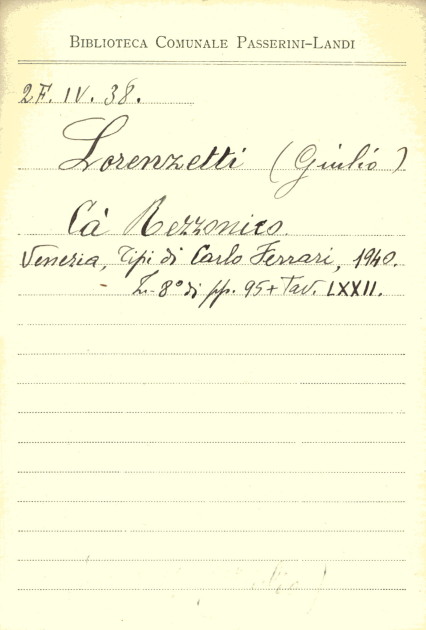 BIBLIOTECA COMUNALE PASSERINI-LANDI
2F. IV. 38.
Lorenzetti (Giulio)
Cà Rezzonico.
Venezia, Tipi di Carlo Ferrari, 1940.
In-8° di pp. 95 + Tav. LXXII.